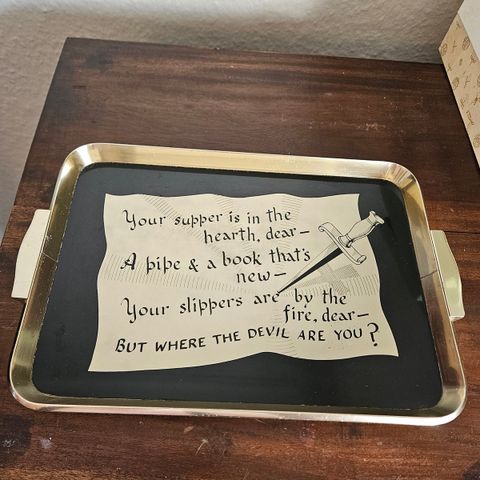 Your supper is in the
hearth, dear—
A pipe & a book that's
new—
Your slippers are by the
fire, dear—
BUT WHERE THE DEVIL ARE YOU?